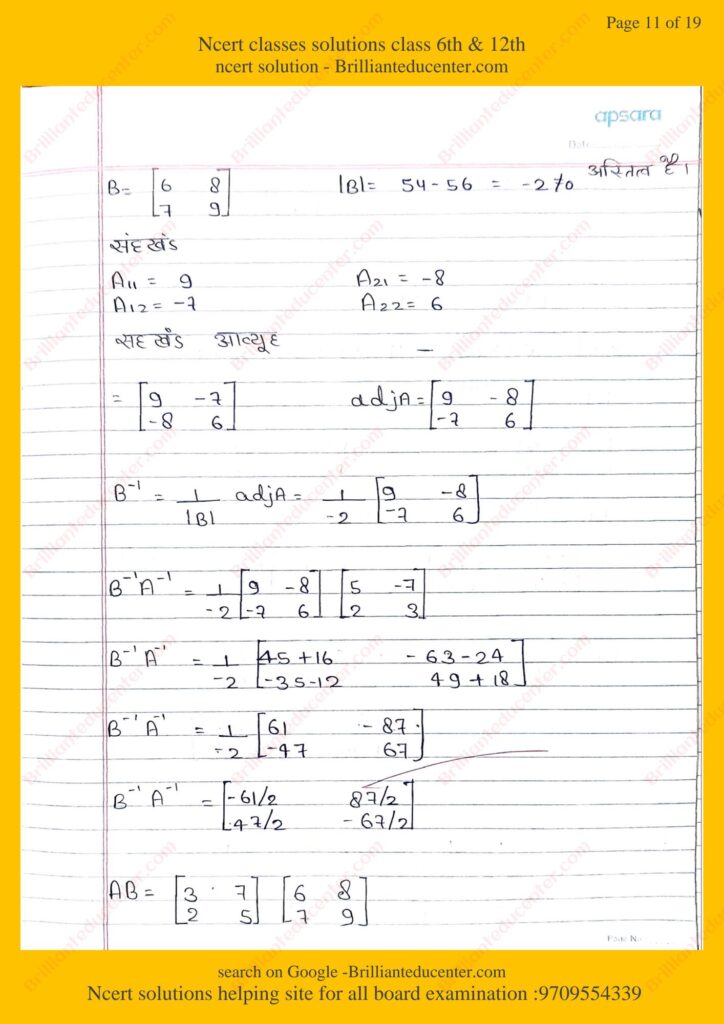 Page 11 of 19
Ncert classes solutions class 6th & 12th
ncert solution - Brillianteducenter.com
apsara
Date
B= [6 8 |B|= 54-56 = -2≠0 अस्तित्व है।
7 9]
संहखंड
A11 = 9 A21 = -8
A12 = -7 A22= 6
सहखंड आव्यूह
= [9 -7 adjA = [9 -8
-8 6] -7 6]
B⁻¹ = 1/|B| adjA = 1/-2 [9 -8
-7 6]
B⁻¹A⁻¹ = 1/-2 [9 -8 [5 -7
-7 6] 2 3]
B⁻¹A⁻¹ = 1/-2 [45+16 -63-24
-35-12 49+18]
B⁻¹A⁻¹ = 1/-2 [61 -87
-47 67]
B⁻¹A⁻¹ = [-61/2 87/2
47/2 -67/2]
AB = [3 7 [6 8
2 5] 7 9]
Page No.
search on Google -Brillianteducenter.com
Ncert solutions helping site for all board examination :9709554339
Brillianteducenter.com